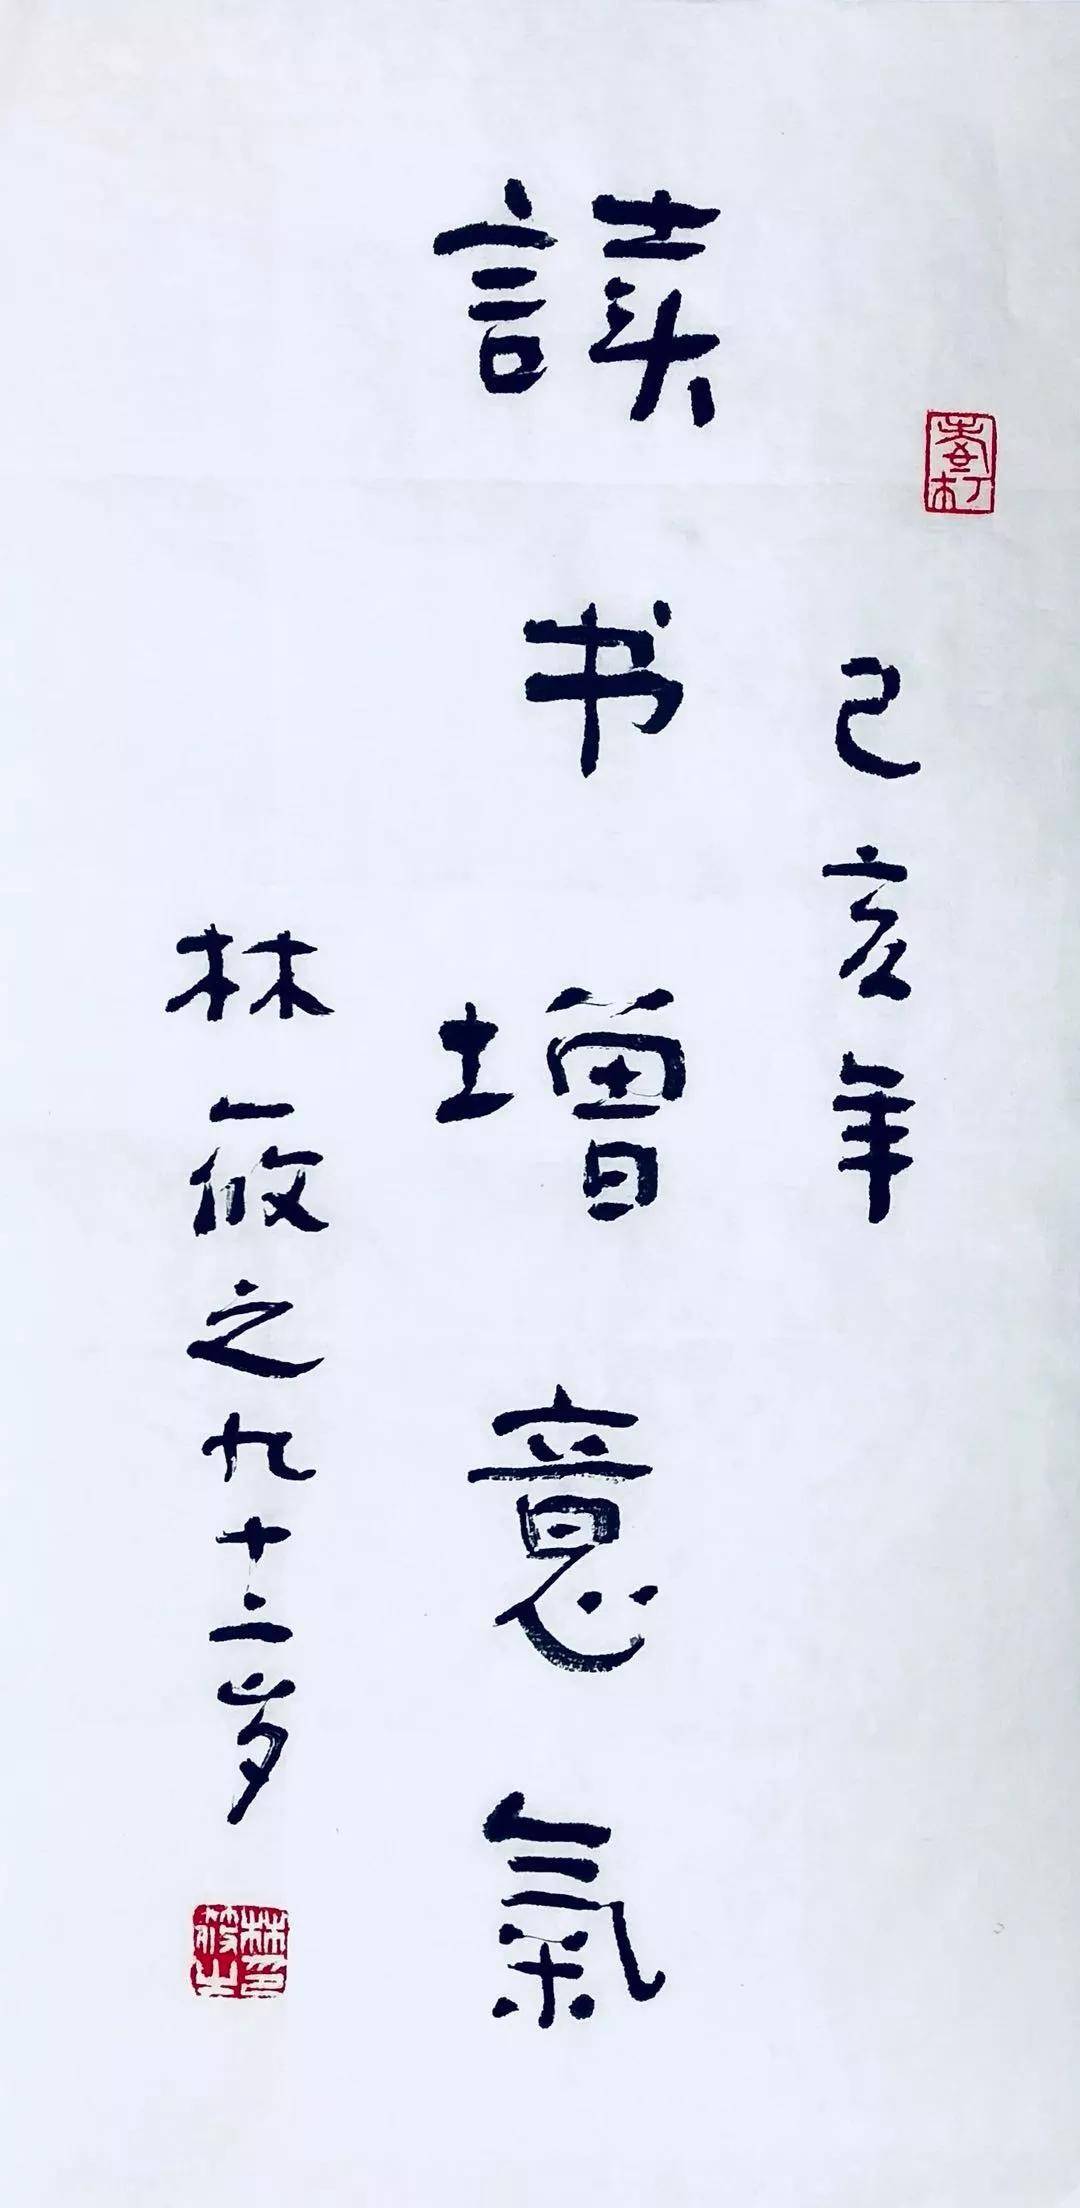 己亥年
读书增意氣
林筱之九十二岁
林印筱之